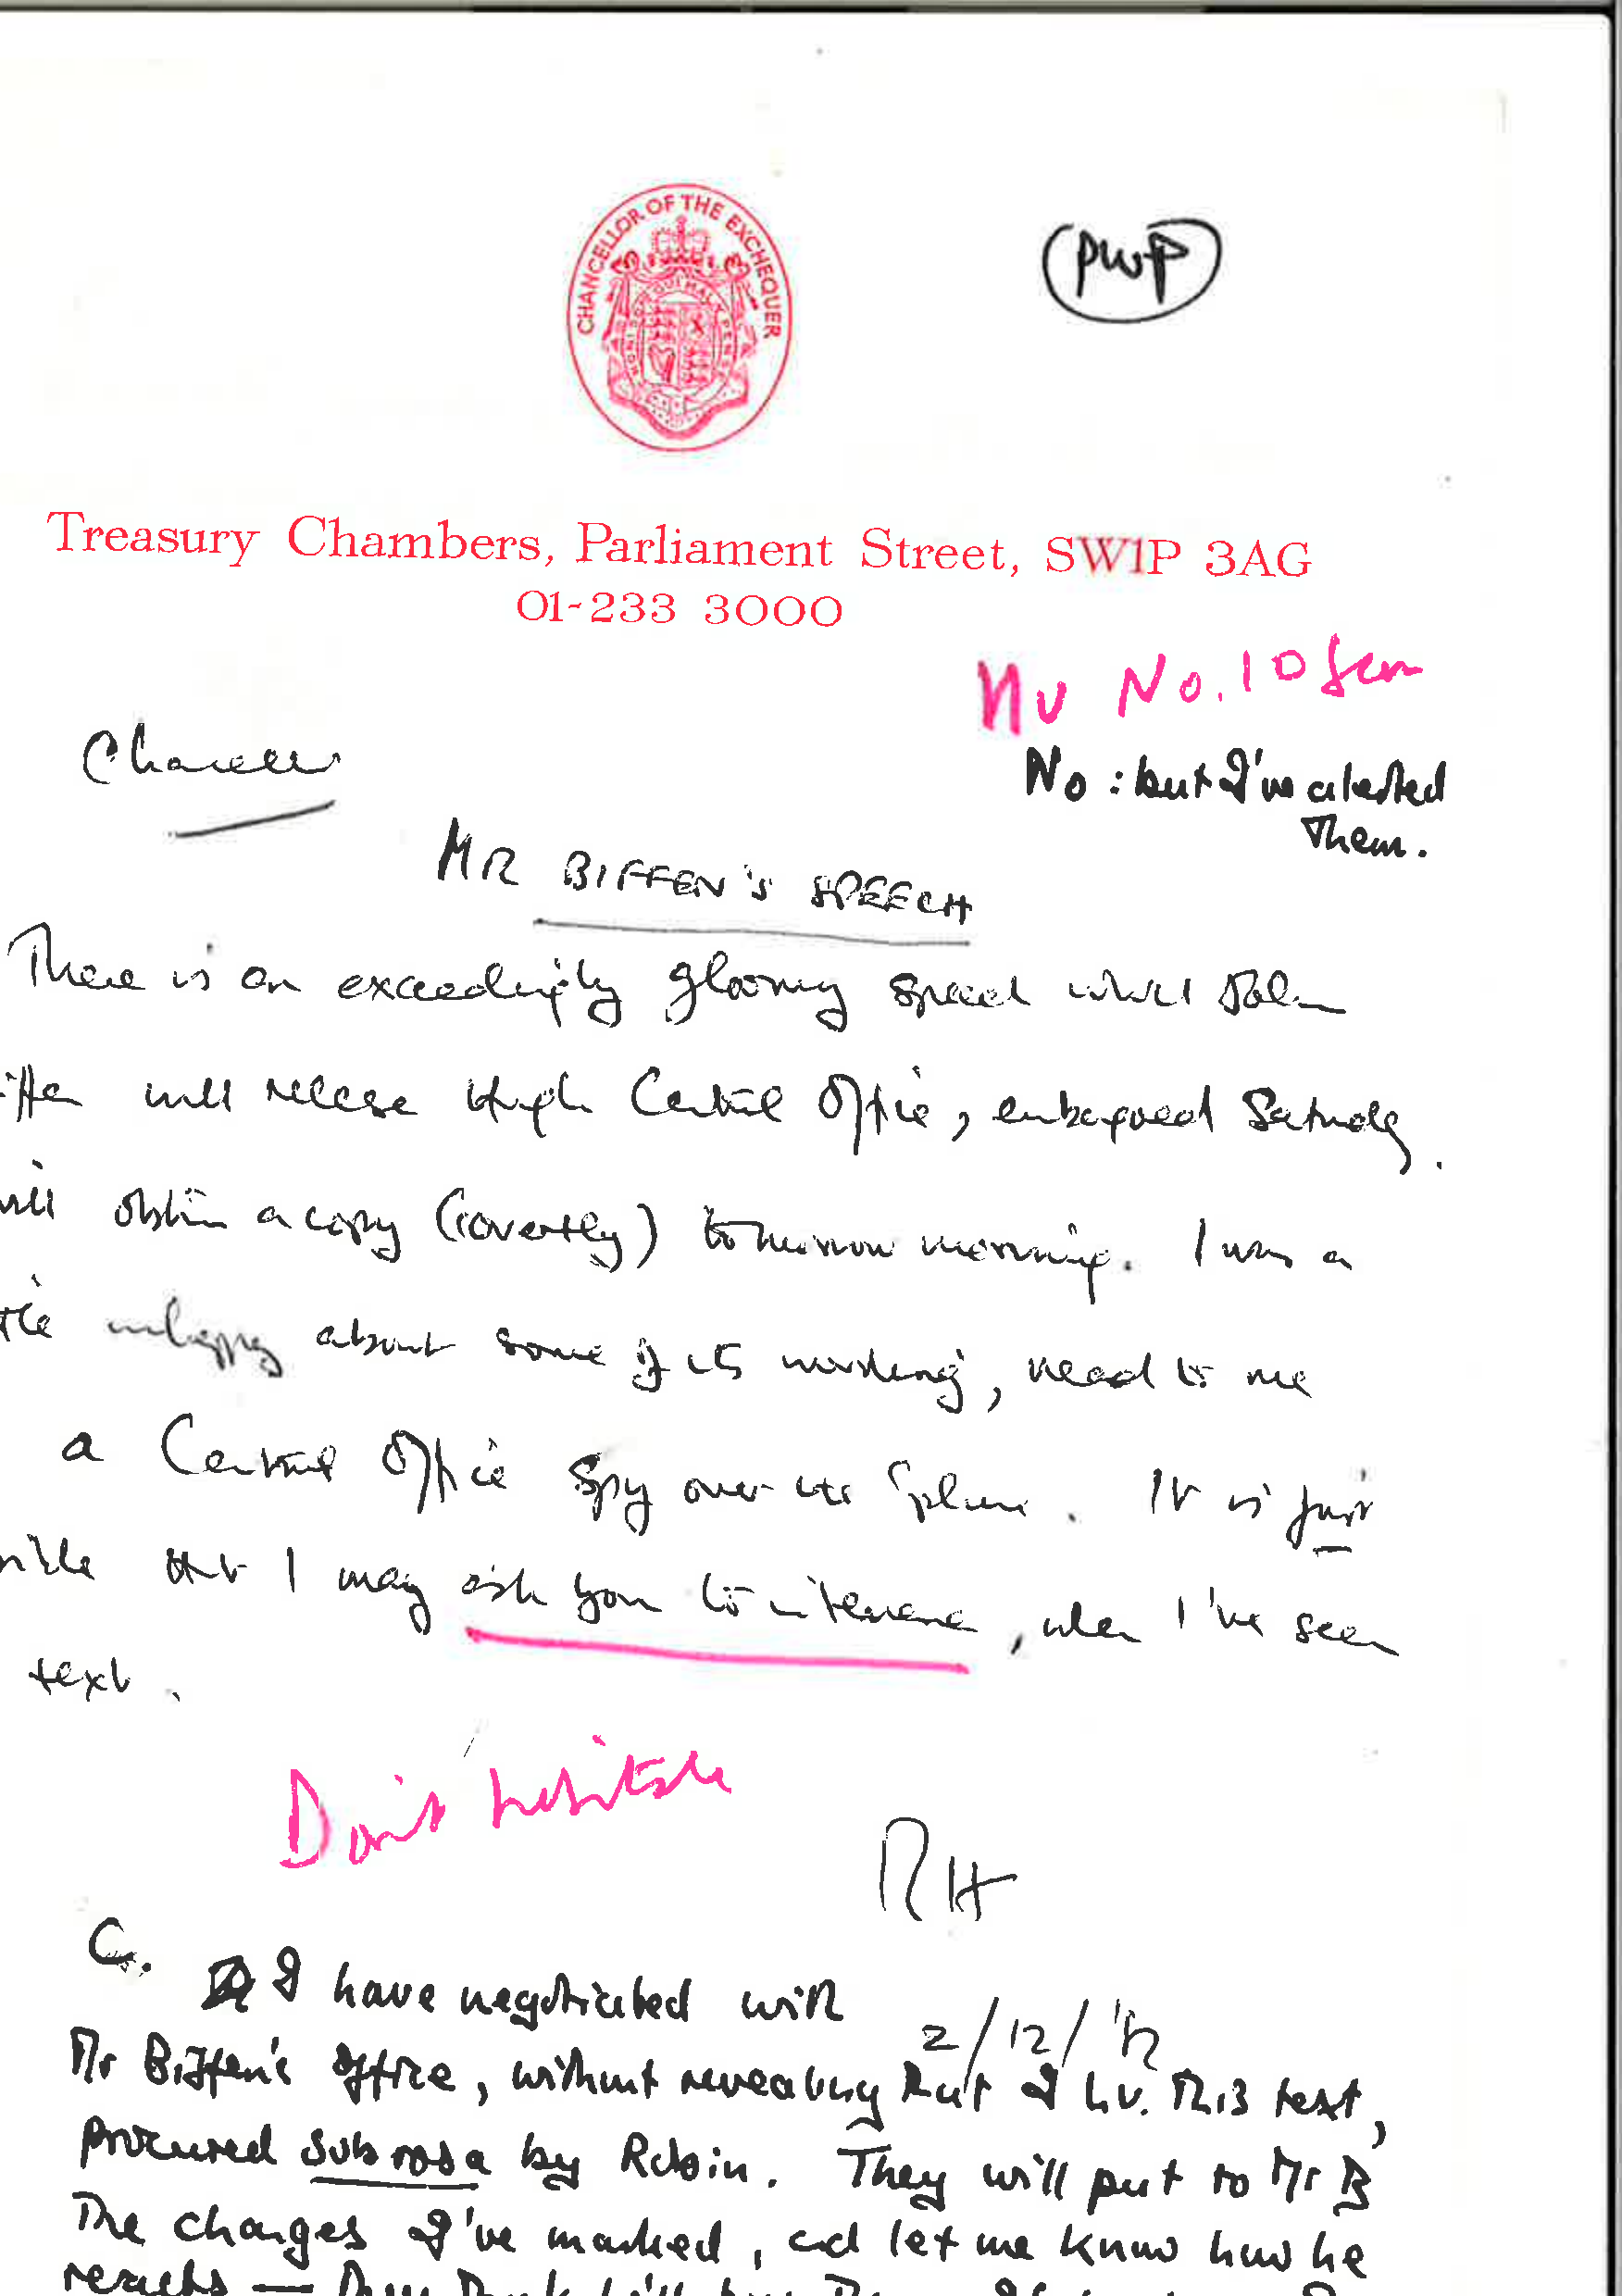 CHANCELLOR OF THE EXCHEQUER
HONI SOIT QUI MAL Y PENSE
PWP
Treasury Chambers, Parliament Street, SW1P 3AG
01-233 3000
Hv No.10 seen
Chancellor
No: but I've alerted
them.
MR BIFFEN'S SPEECH
There is an exceedingly gloomy speech which John
iffen will release through Central Office, embargoed Saturday.
will obtain a copy (covertly) tomorrow morning. I was a
ttle unhappy about some of its wording, read to me
a Central Office spy over the 'phone. It is just
sible that I may ask you to intervene, when I've seen
text.
Don't hesitate
RH
2/12/82
C. I have negotiated with
Mr Biffen's office, without revealing that I hv. this text,
procured sub rosa by Robin. They will put to Mr B
the changes I've marked, and let me know how he
reacts —